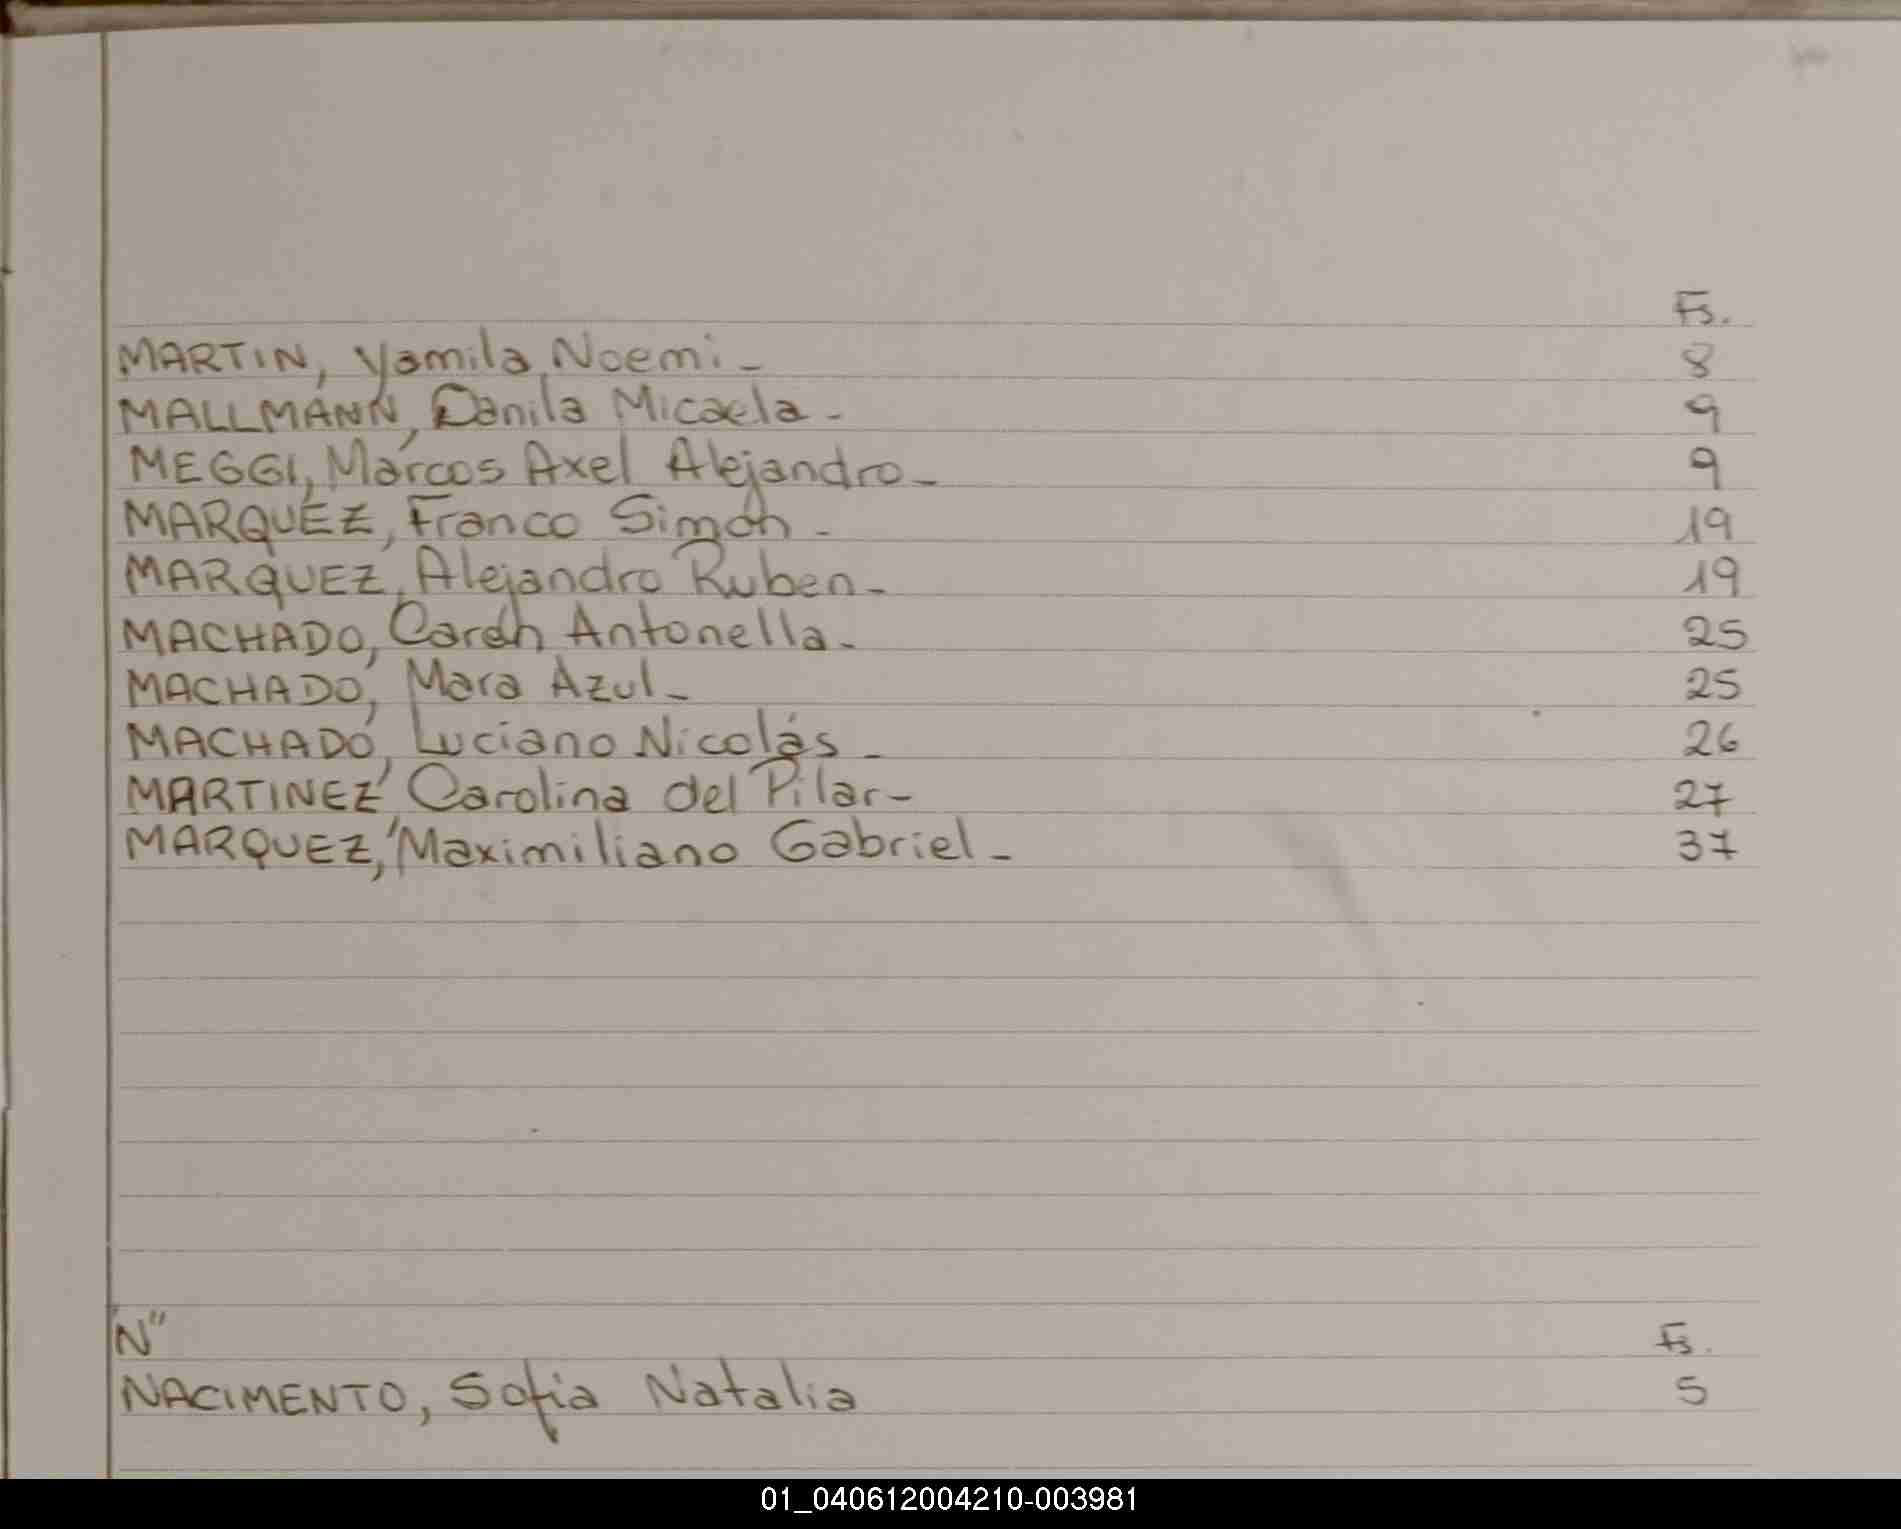 Fs.
MARTIN, Yamila Noemi - 8
MALLMANN, Danila Micaela - 9
MEGGI, Marcos Axel Alejandro - 9
MARQUEZ, Franco Simon - 19
MARQUEZ, Alejandro Ruben - 19
MACHADO, Antonella - 25
MACHADO, Mara Azul - 25
MACHADO, Luciano Nicolás - 26
MARTINEZ, Carolina del Pilar - 27
MARQUEZ, Maximiliano Gabriel - 37
N" Fs.
NACIMENTO, Sofia Natalia 5
01_040612004210-003981